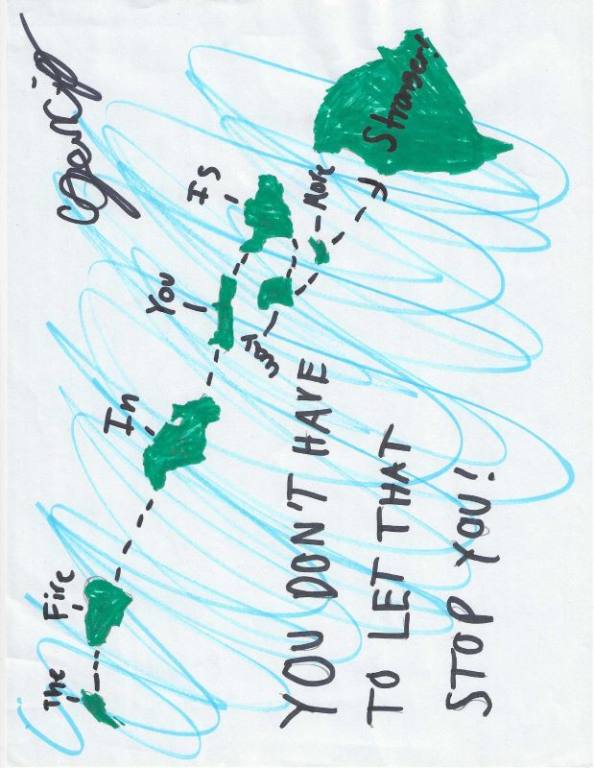 The Fire In You Is
More Stronger!
YOU DON'T HAVE
TO LET THAT
STOP YOU!